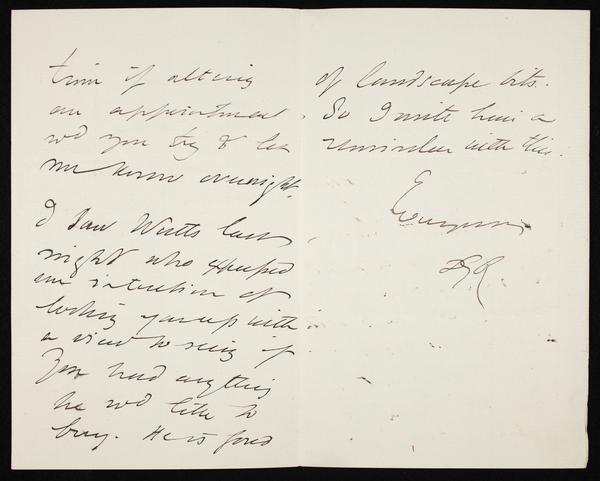 time if altering
an appointment,
wd you try & let
me know overnight.
I saw Watts last
night who expressed
an intention of
looking you up with
a view to seeing if
you had anything
he wd like to
buy. He is fond
of landscape bits.
So I write him a
reminder with this.
Ever yours
DGR